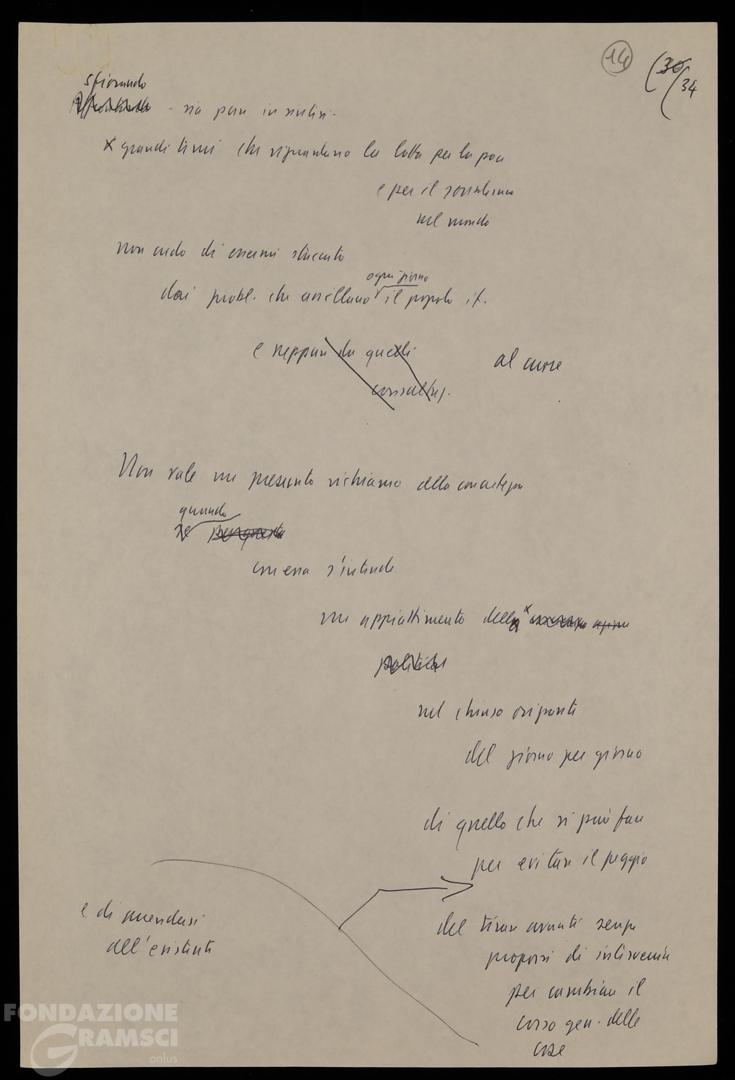 14
(30
(34
sfiorando
- sia pure in sintesi -
x grandi temi che riguardano la lotta per la pace
e per il socialismo
nel mondo
non credo di essermi staccato
ogni giorno
dai probl. che assillano il popolo it.
e neppure da quelli
al cuore
consultaz.
Non vale un presunto richiamo alla concretezza
quando
se
con essa s'intende
un appiattimento della x
politica
nel chiuso orizzonte
del giorno per giorno
di quello che si può fare
per evitare il peggio
e di arrendersi
all'esistente
del tirare avanti senza
proporsi di intervenire
per cambiare il
corso gen. delle
cose
FONDAZIONE
GRAMSCI
onlus